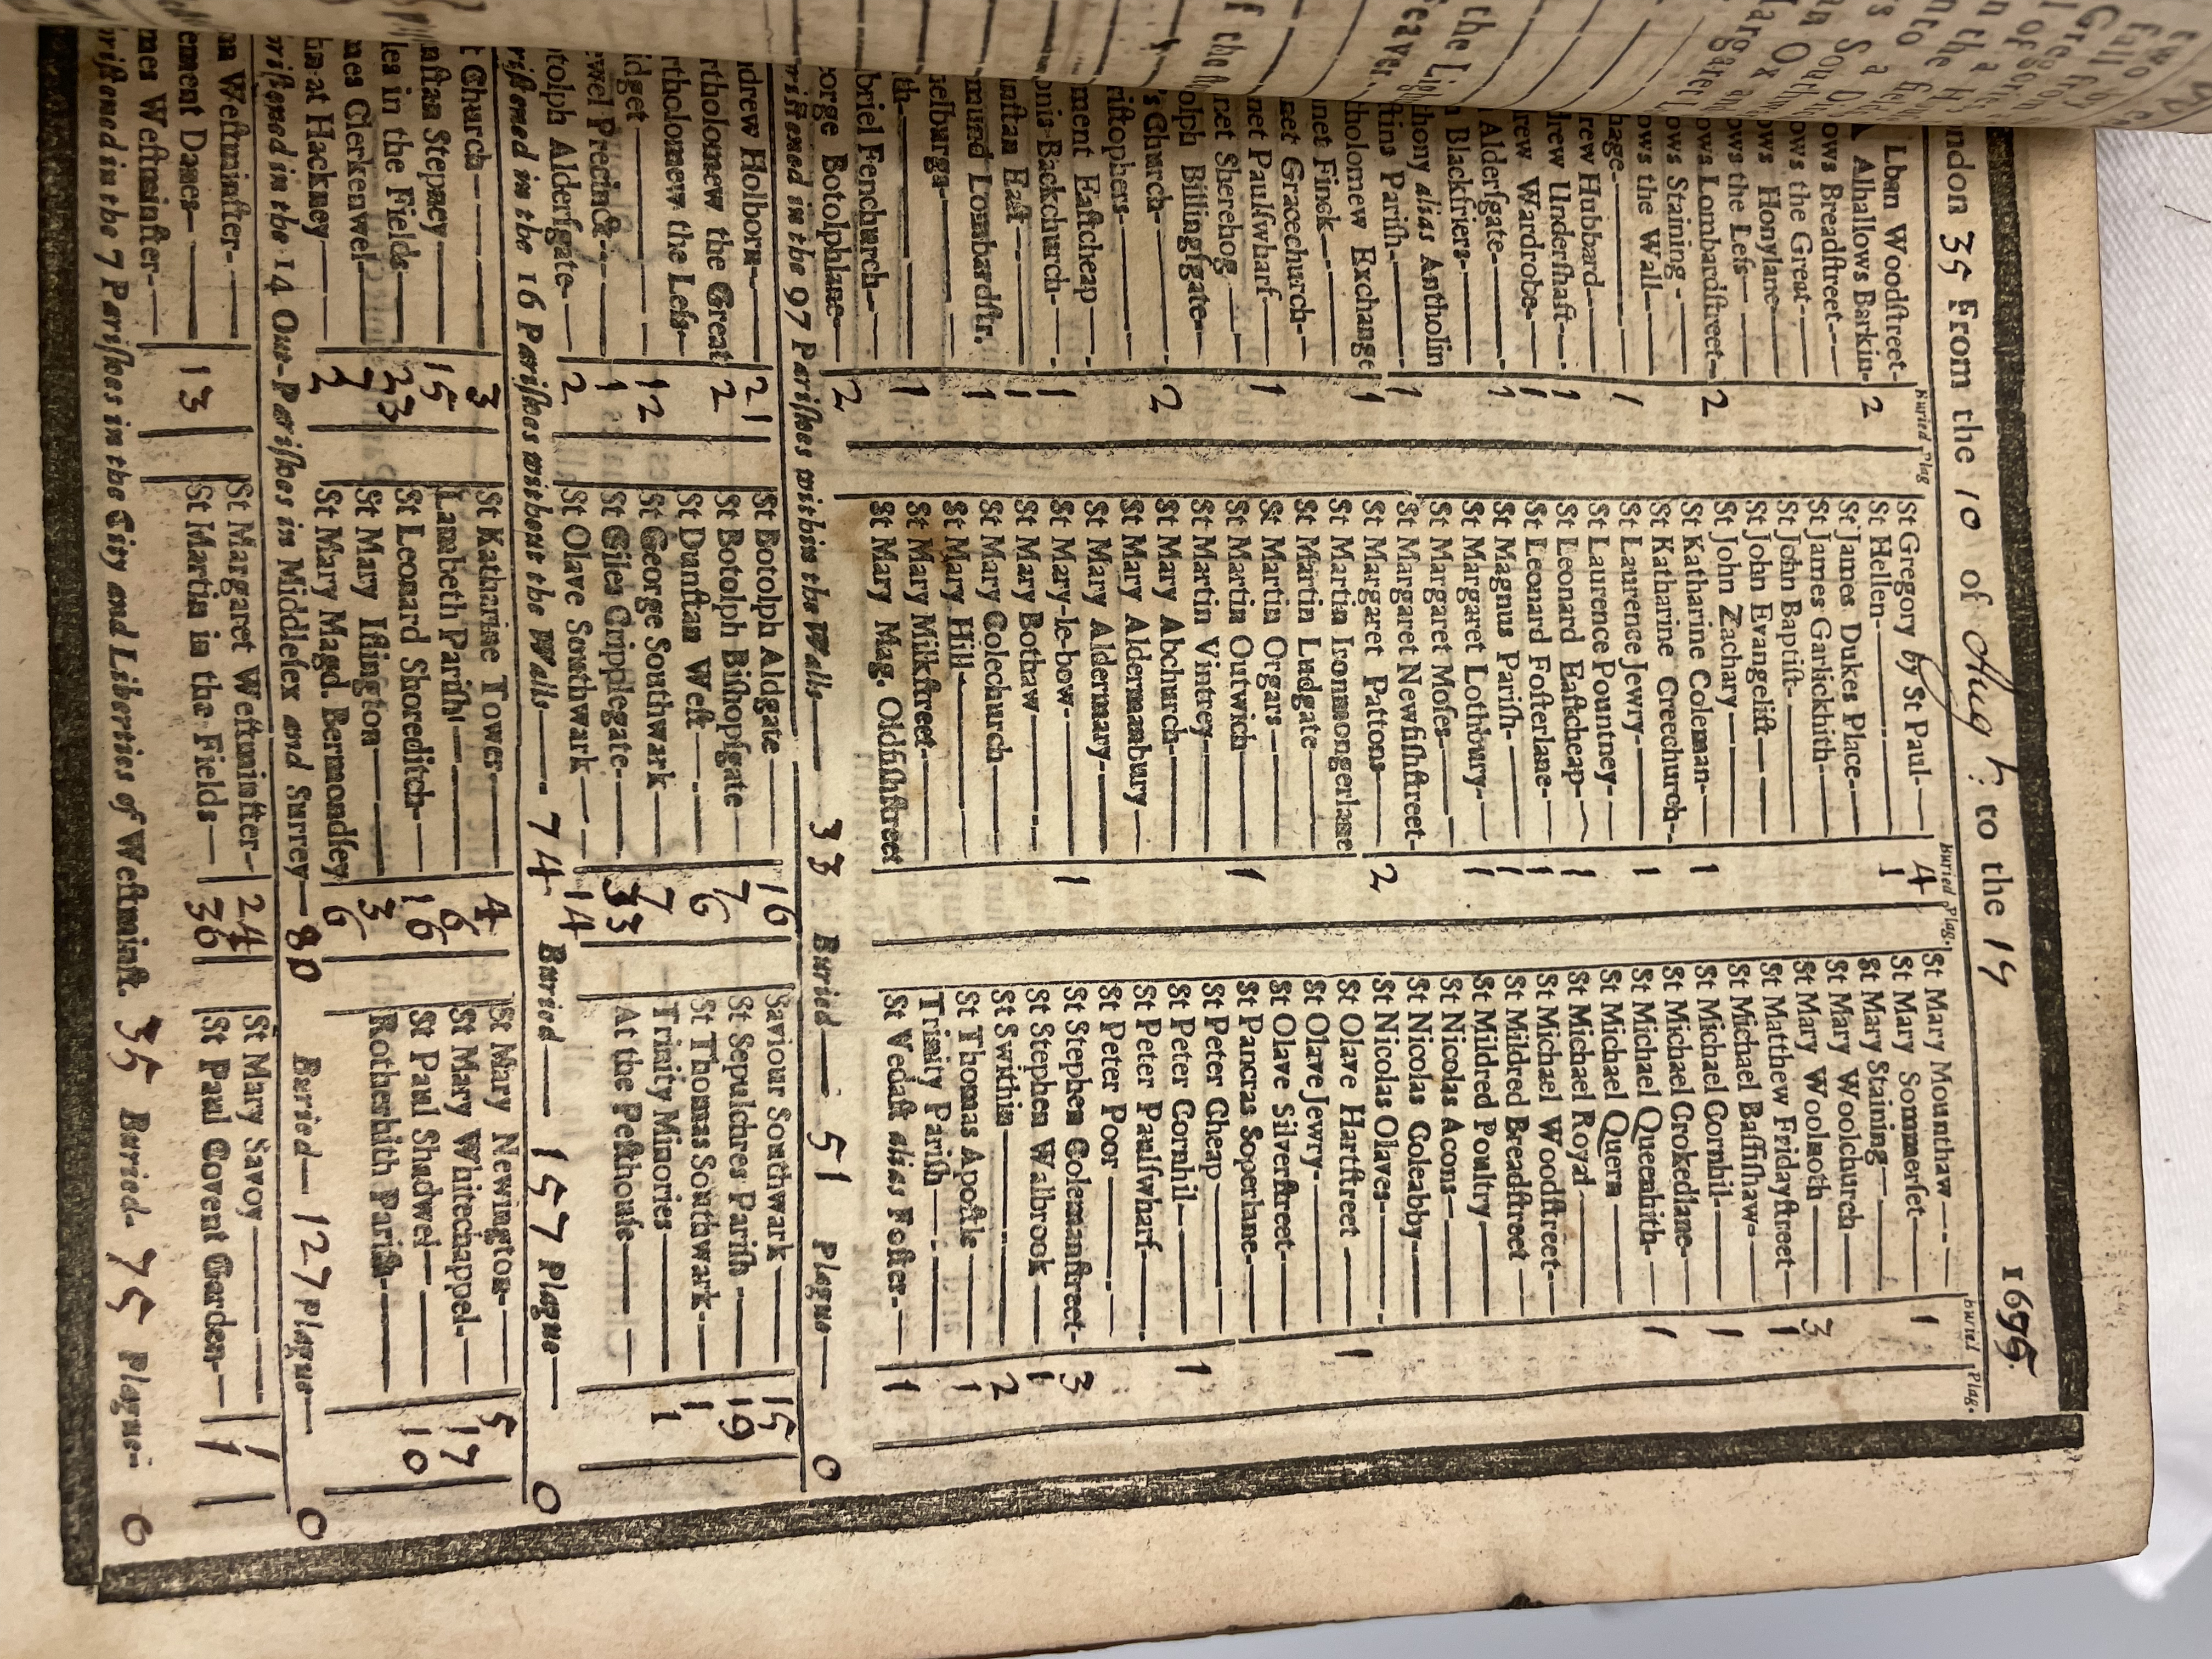 ndon 35 From the 10 of Augst: to the 17 1695.
Buried Plag
Lban Woodſtreet- 2
Alhallows Barkin-
ows Breadſtreet---
ows the Great--
ows Honylane
ows the Leſs--
ows Lombardſtreet- 2
ows Staining -
ows the Wall--
hage- 1
rew Hubbard
drew Underſhaft--- 1
rew Wardrobe- 1
Alderſgate--- 1
n Blackfriers-
hony alias Antholin
ſtins Pariſh- 1
holomew Exchange 1
net Finck--
net Gracechurch--
net Paulſwharf- 1
net Sherehog
olph Billingſgate--
's Church- 2
riſtophers-
ment Eaſtcheap
onis Backchurch- 1
unſtan Eaſt--- 1
mund Lombardſtr. 1
helburga-
th- 1
briel Fenchurch--
orge Botolphlane- 2
Buried Plag.
St Gregory by St Paul- 4
St Hellen- 1
St James Dukes Place-
St James Garlickhith-
St John Baptiſt-
St John Evangeliſt-
St John Zachary
St Katharine Coleman- 1
St Katharine Creechurch-
St Laurence Jewry- 1
St Laurence Pountney-
St Leonard Eaſtcheap- 1
St Leonard Foſterlane- 1
St Magnus Pariſh- 1
St Margaret Lothbury- 1
St Margaret Moſes-
St Margaret Newfiſhſtreet-
St Margaret Pattons 2
St Martin Ironmongerlane
St Martin Ludgate
St Martin Orgars
St Martin Outwich 1
St Martin Vintrey-
St Mary Abchurch-
St Mary Aldermanbury
St Mary Aldermary
St Mary-le-bow- 1
St Mary Bothaw
St Mary Colechurch
St Mary Hill-
St Mary Milkſtreet-
St Mary Mag. Oldfiſhſtreet
Buried Plag.
St Mary Mounthaw
St Mary Sommerſet 1
St Mary Staining
St Mary Woolchurch
St Mary Woolnoth 3
St Matthew Fridayſtreet 1
St Michael Baſſiſhaw-
St Michael Cornhil- 1
St Michael Crokedlane-
St Michael Queenhith- 1
St Michael Quern
St Michael Royal
St Michael Woodſtreet-
St Mildred Breadſtreet
St Mildred Poultry
St Nicolas Acons-
St Nicolas Coleabby-
St Nicolas Olaves-
St Olave Hartſtreet 1
St Olave Jewry-
St Olave Silverſtreet-
St Pancras Soperlane-
St Peter Cheap
St Peter Cornhil 1
St Peter Paulſwharf-
St Peter Poor
St Stephen Colemanſtreet- 3
St Stephen Walbrook 1
St Swithin 2
St Thomas Apoſtle 1
Trinity Pariſh
St Vedaſt alias Foſter- 1
riſtned in the 97 Pariſhes within the Walls 33 Buried 51 Plague 0
drew Holborn- 21
rtholomew the Great 2
rtholomew the Leſs-
idget 12
ewel Precinct- 1
tolph Alderſgate- 2
St Botolph Aldgate 16
St Botolph Biſhopſgate 7
St Dunſtan Weſt 6
St George Southwark 7
St Giles Cripplegate- 33
St Olave Southwark 14
Saviour Southwark 15
St Sepulchres Pariſh 19
St Thomas Southwark- 1
Trinity Minories 1
At the Peſthouſe
riſtned in the 16 Pariſhes without the Walls 74 Buried 157 Plague 0
t Church 3
nſtan Stepney 15
les in the Fields 23
mes Clerkenwel 7
hn at Hackney 2
St Katharine Tower 4
Lambeth Pariſh 6
St Leonard Shoreditch- 16
St Mary Iſlington 3
St Mary Magd. Bermondſey 6
St Mary Newington- 5
St Mary Whitechappel- 17
St Paul Shadwel 10
Rotherhith Pariſh-
riſtned in the 14 Out-Pariſhes in Middleſex and Surrey 80 Buried 127 Plague 0
nn Weſtminſter-
ement Danes 13
mes Weſtminſter-
St Margaret Weſtminſter- 24
St Martin in the Fields 36
St Mary Savoy 1
St Paul Covent Garden- 1
riſtned in the 7 Pariſhes in the City and Liberties of Weſtminſt. 35 Buried 75 Plague- 0